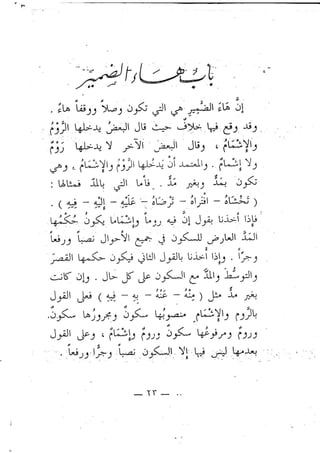 باب هاء الضمير
إن هاء الضمير هي التي تكون وصلاً ووقفاً هاء .
وقد وقع فيها خلاف حيث قال البعض يدخلها الرَّوْمُ
والإشمامُ ، وقال البعض الآخر لا يدخلها رَوْمٌ
ولا إشمامٌ . والمعتمد أن يدخلها الرَّوْمُ والإشمامُ ، وهي
تكون بمدٍّ وبغير مدٍّ . فأما التي بالمد فمثالها :
( تَخْشَاهُ - افْتَرَاهُ - تَرْضَاهُ - عَلَيْهِ - إِلَيْهِ - فِيهِ ) .
فإذا أخذنا بقول إن فيه روماً وإشماماً يكون حكمُها
المدَّ العارض للسكون في جميع الأحوال نصباً ورفعاً
وجراً . وإذا أخذنا بالقول الثاني فيكون حكمها القصرَ
والتوسطَ والمدَّ مع السكون على كل حال . وإن كانت
بغير مد مثل ( مِنْهُ - عَنْهُ - بِهِ - فِيهِ ) فعلى القول
بالرَّوم والإشمامِ منصوبُها سكونٌ ومجرورُها سكونٌ
ورومٌ ومرفوعُها سكونٌ ورومٌ وإشمامٌ ، وعلى القول
بعدمها ليس فيها إلا السكون نصباً وجراً ورفعاً .
— ٢٣ —